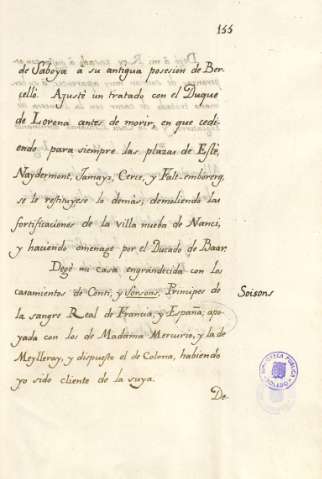 155
de Saboya a su antigua posesion de Ber-
celli. Ajusté un tratado con el Duque
de Lorena antes de morir, en que cedi-
endo para siempre las plazas de Esté,
Naydermont, Jamays, Cerce, y Falt-emborerg,
se le restituyese lo demas; demoliendo las
fortificaciones de la villa nueba de Nanci,
y haciendo omenage por el Ducado de Baar.
Dejé mi casa engrandecida con los
casamientos de Conti, y Sorsons, Principes de
la sangre Real de Francia, y España; apo-
yada con los de Madama Mercurio, y la de
Meylleray, y dispuesto el de Colona, habiendo
yo sido cliente de la suya.
Soisons
De
BIBLIOTECA PUBLICA
TOLEDO